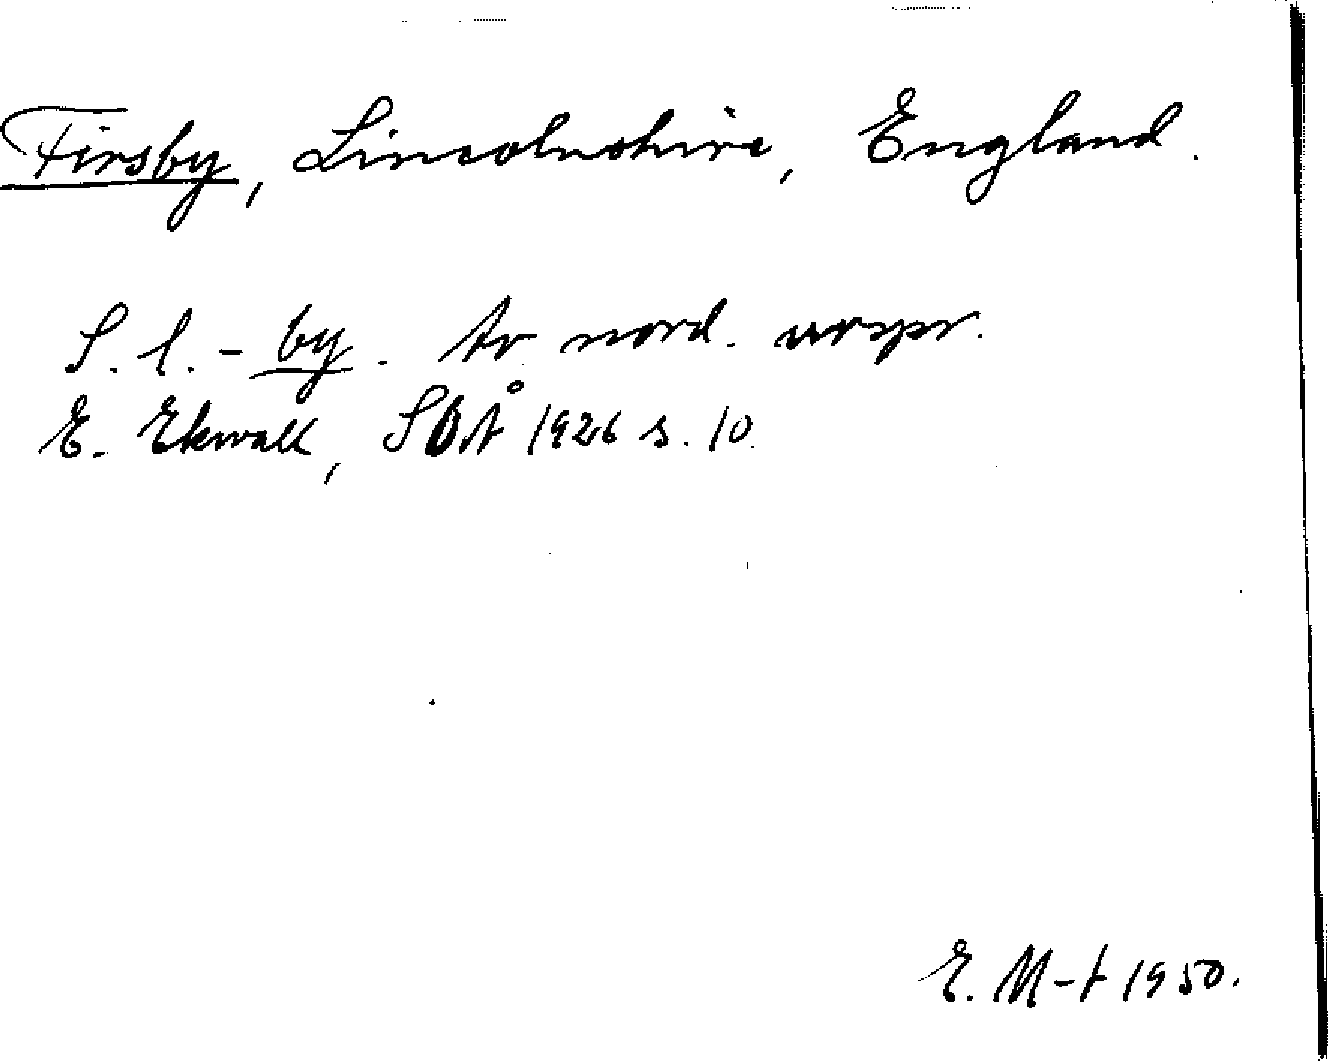 Firsby, Lincolnshire, England.
S. l. - by. Av nord. urspr.
E. Ekwall, SOÅ 1926 s. 10.
E. M-t 1950.